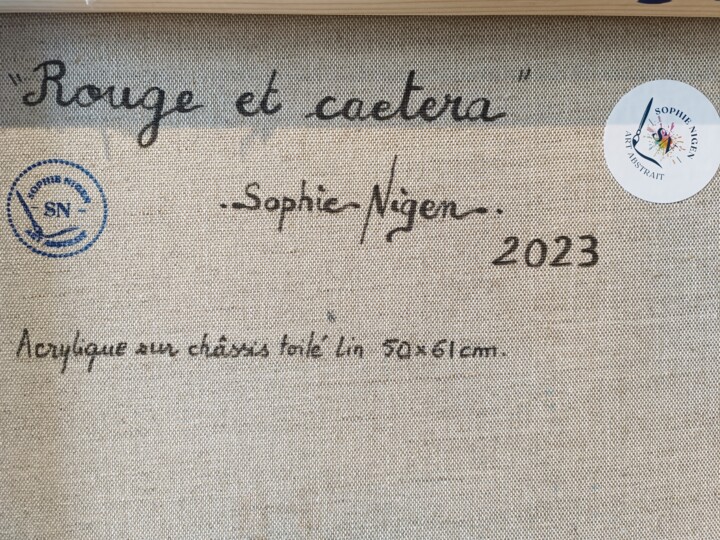 "Rouge et caetera"
SOPHIE NIGEN
ART ABSTRAIT
SOPHIE NIGEN
- SN -
ART ABSTRAIT
. Sophie Nigen .
2023
Acrylique sur châssis toilé Lin 50x61cm.